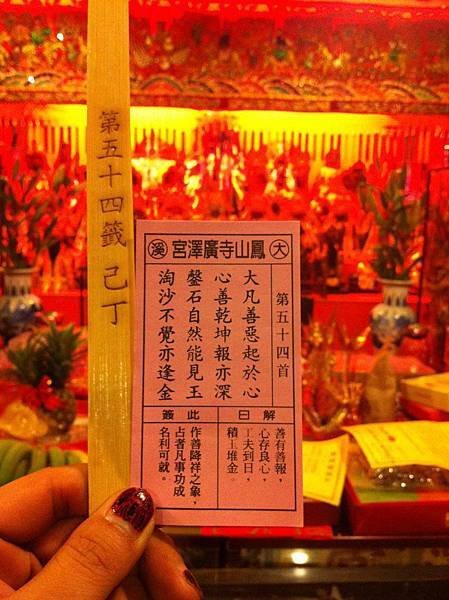 第五十四籤 己丁
大溪鳳山寺廣澤宮
第五十四首
大凡善惡起於心
心善乾坤報亦深
鑿石自然能見玉
淘沙不覺亦逢金
解曰
善有善報，
心存良心，
工夫到日，
積工堆金。
此簽
作善降祥之象，
占者凡事功成
名利可就。